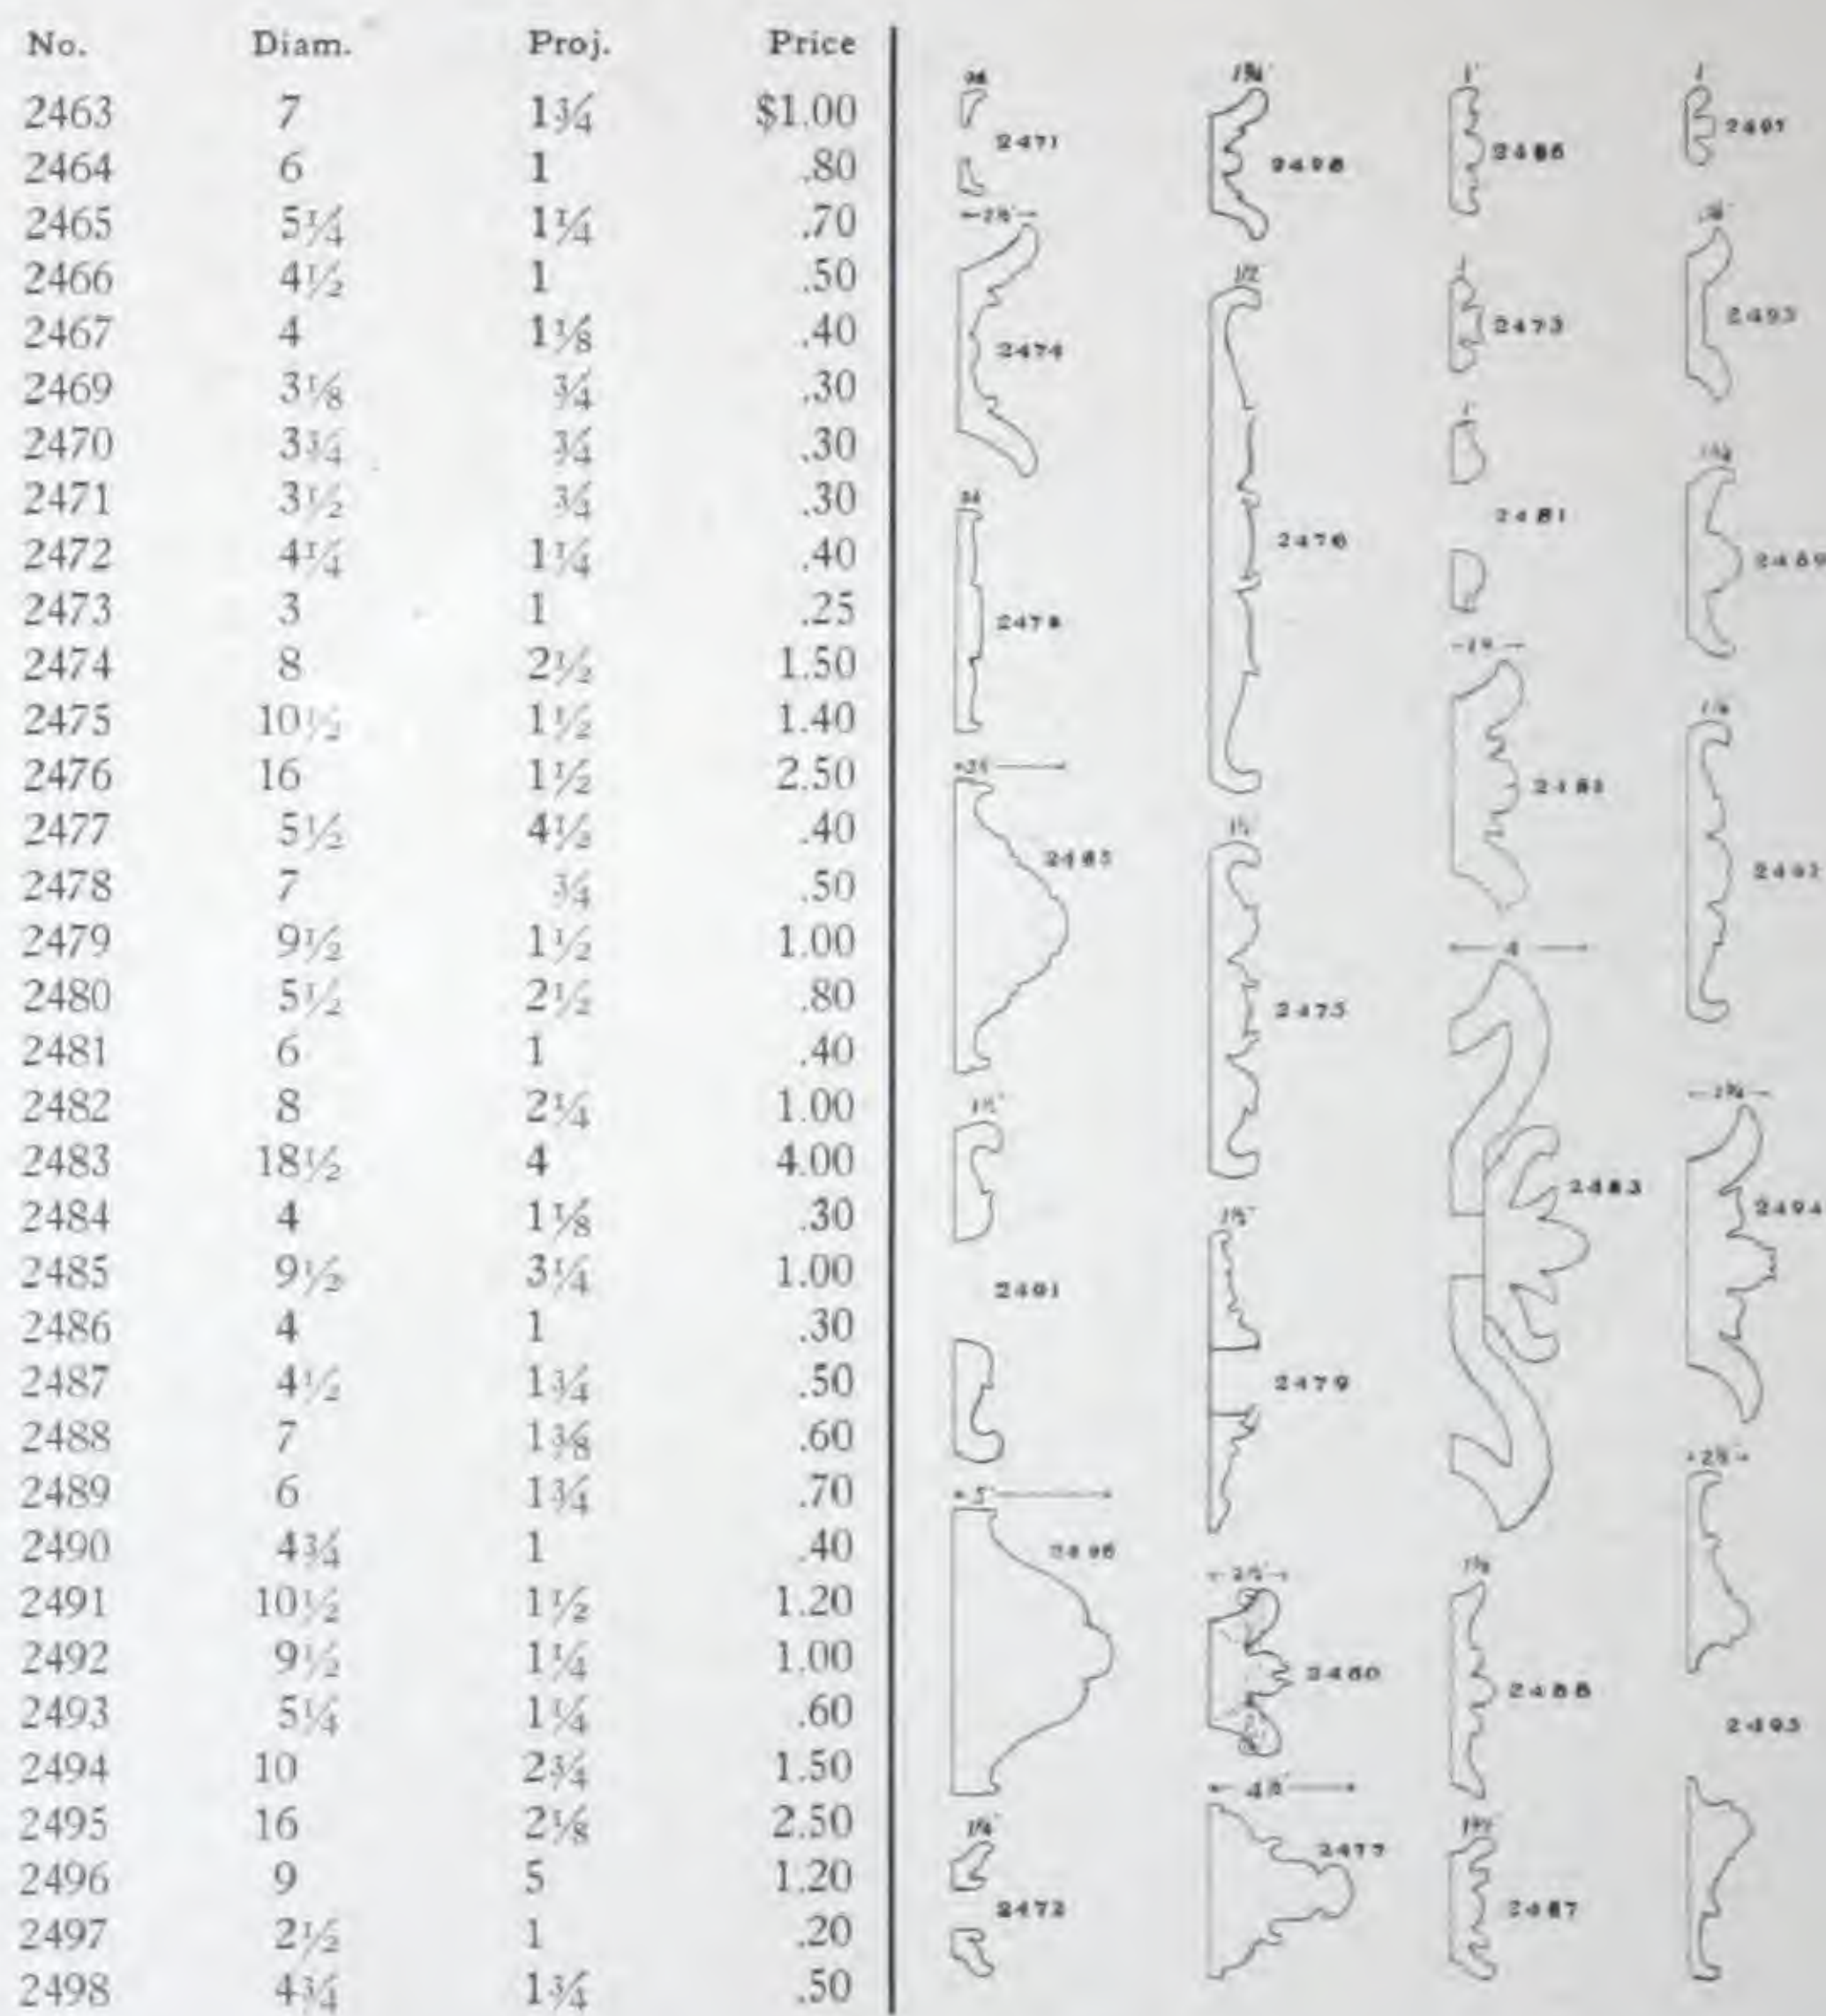 No. Diam. Proj. Price
2463 7 1¾ $1.00
2464 6 1 .80
2465 5¼ 1¼ .70
2466 4½ 1 .50
2467 4 1⅛ .40
2469 3⅛ ¾ .30
2470 3¾ ¾ .30
2471 3½ ¾ .30
2472 4¼ 1¼ .40
2473 3 1 .25
2474 8 2½ 1.50
2475 10½ 1½ 1.40
2476 16 1½ 2.50
2477 5½ 4½ .40
2478 7 ¾ .50
2479 9½ 1½ 1.00
2480 5½ 2½ .80
2481 6 1 .40
2482 8 2¼ 1.00
2483 18½ 4 4.00
2484 4 1⅛ .30
2485 9½ 3¼ 1.00
2486 4 1 .30
2487 4½ 1¾ .50
2488 7 1⅜ .60
2489 6 1¾ .70
2490 4¾ 1 .40
2491 10½ 1½ 1.20
2492 9½ 1¼ 1.00
2493 5¼ 1¼ .60
2494 10 2¾ 1.50
2495 16 2⅛ 2.50
2496 9 5 1.20
2497 2½ 1 .20
2498 4¾ 1¾ .50
2471
2½"
2474
2478
2485
1½"
2491
5"
2496
1¼"
2472
1¾"
2498
1½"
2476
1½"
2475
1½"
2479
2½"
2480
4½"
2477
1"
2486
1"
2473
1"
2481
4
2483
1⅜
2488
1¾"
2487
1
2497
2493
1¾
2489
2492
2¾
2494
2495